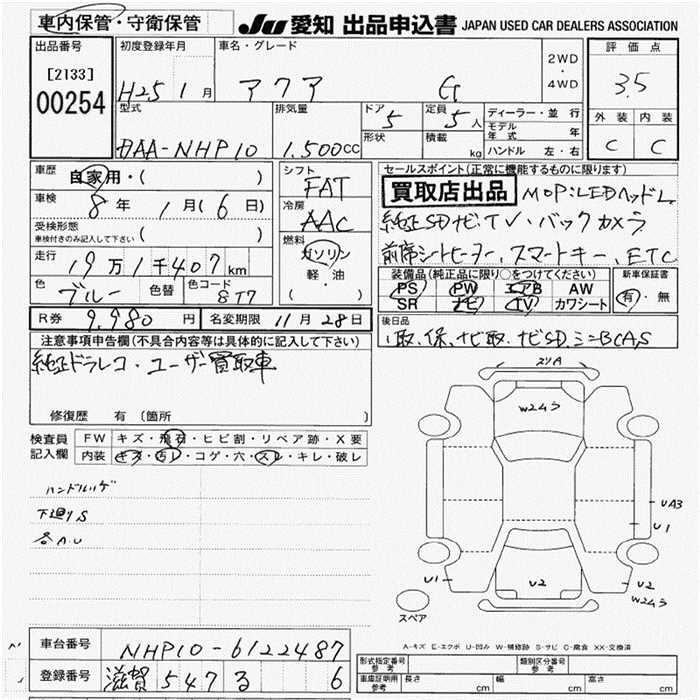 車内保管・守衛保管
JU 愛知 出品申込書 JAPAN USED CAR DEALERS ASSOCIATION
出品番号
[2133]
00254
初度登録年月
H25 1 月
車名・グレード
アクア G
2WD
・
4WD
評価点
3.5
外装 内装
C C
型式
DAA-NHP10
排気量
1.500CC
ドア
5
形状
定員
5人
積載
kg
ディーラー・並行
モデル
年式 年
ハンドル 左・右
車歴
自家用・( )
車検
8 年 1 月 ( 6 日)
受検形態
車検付きのみ記入して下さい ( )
走行
19万1千407km
色
ブルー
色替
色コード
8T7
シフト
FAT
冷房
AAC
燃料
ガソリン
軽・油
( ・ )
セールスポイント(正常に機能するものに限ります)
買取店出品 MOP:LEDヘッドL
純正SDナビ、TV・バックカメラ
前席シートヒーター、スマートキー、ETC
装備品(純正品に限り○をつけてください)
PS PW エアB AW
SR ナビ TV カワシート
新車保証書
有・無
R券 9,980 円
名変期限 11月28日
後日品
取、保、ナビ取、ナビSD、ミニBCAS
注意事項申告欄(不具合内容等は具体的に記入して下さい)
純正ドラレコ・ユーザー買取車
修復歴 有 〔箇所 〕
検査員
記入欄
FW キズ・飛石・ヒビ割・リペア跡・X要
内装 キズ・汚レ・コゲ・穴・スレ・キレ・破レ
ハンドルハゲ
下廻りS
各A.U
スリA
W2ムラ
UA3
U1
U1
U2
U2
W2ムラ
スペア
A-キズ E-エクボ U-凹み W-補修跡 S-サビ C-腐食 XX-交換済
車台番号 NHP10-6122487
登録番号 滋賀 547 る 6
形式指定番号
参考
類別区分番号
参考
車庫証明用
参考
長さ cm 幅 cm 高さ cm